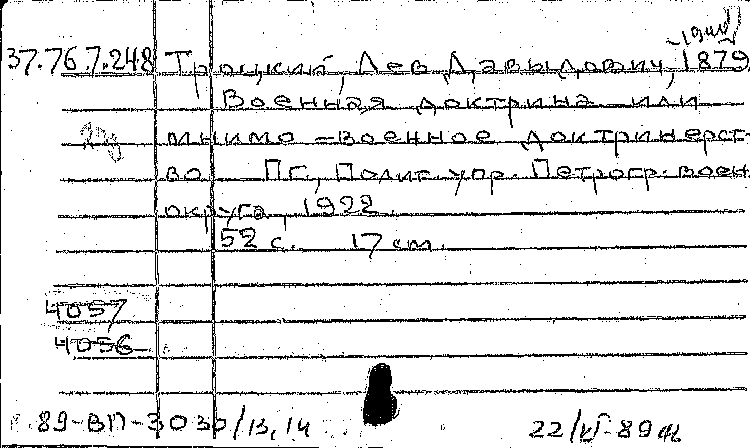 -1940
37.76.7.248 Троцкий, Лев Давыдович, 1879
Военная доктрина или
мнимо-военное доктринерст-
во ПГ., Полит.упр. Петрогр. воен.
округа, 1922.
52 с. 17 см.
4057
4056
89-ВП-3030/13,14
22/VI-89